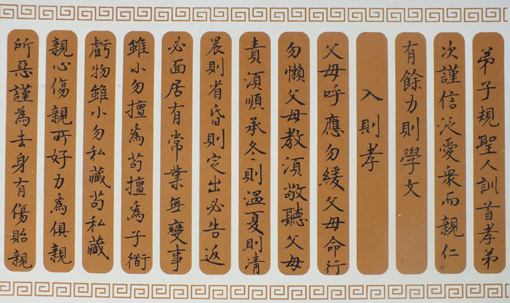 弟子規聖人訓首孝弟
次謹信泛愛衆而親仁
有餘力則學文
入則孝
父母呼應勿緩父母命行
勿懶父母教須敬聽父母
責須順承冬則溫夏則凊
晨則省昏則定出必告返
必面居有常業無變事
雖小勿擅為苟擅為子衜
虧物雖小勿私藏苟私藏
親心傷親所好力為俱親
所惡謹為去身有傷貽親